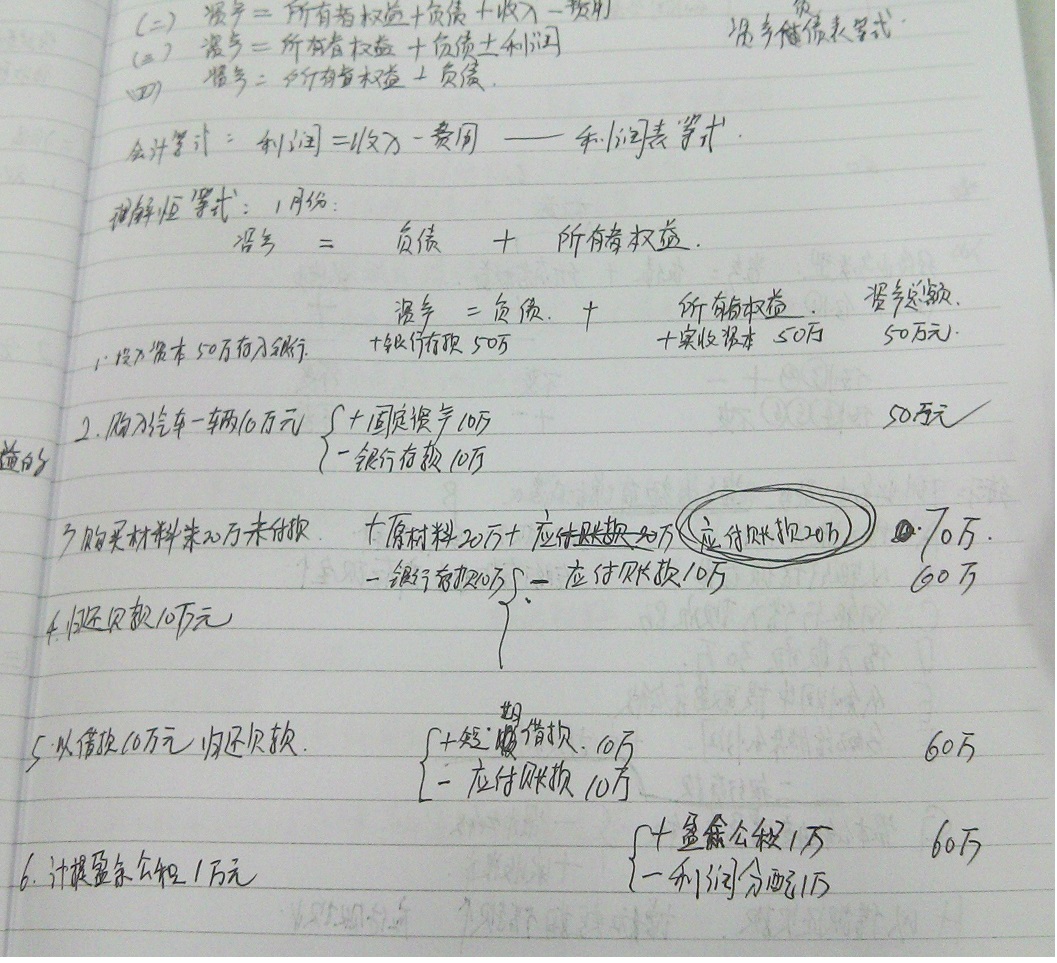 (二) 资产 = 所有者权益 + 负债 + 收入 - 费用
(三) 资产 = 所有者权益 + 负债 ± 利润
(四) 资产 = 所有者权益 + 负债.
负
资产债表等式.
会计等式: 利润 = 收入 - 费用 —— 利润表等式.
理解恒等式: 1月份:
资产 = 负债 + 所有者权益.
资产 = 负债. + 所有者权益. 资产总额.
1. 投入资本50万存入银行. +银行存款50万 +实收资本 50万 50万元.
2. 购入汽车一辆10万元 { +固定资产10万 50万元✓
-银行存款10万
益的
3 购买材料款20万未付款 +原材料20万+ 应付账款20万 应付账款20万 70万.
-银行存款10万 { - 应付账款10万 60万
4. 归还欠款10万元
5. 以借款10万元归还欠款. { +短期借款. 10万 60万
- 应付账款 10万
6. 计提盈余公积1万元 { +盈余公积1万 60万
-利润分配1万